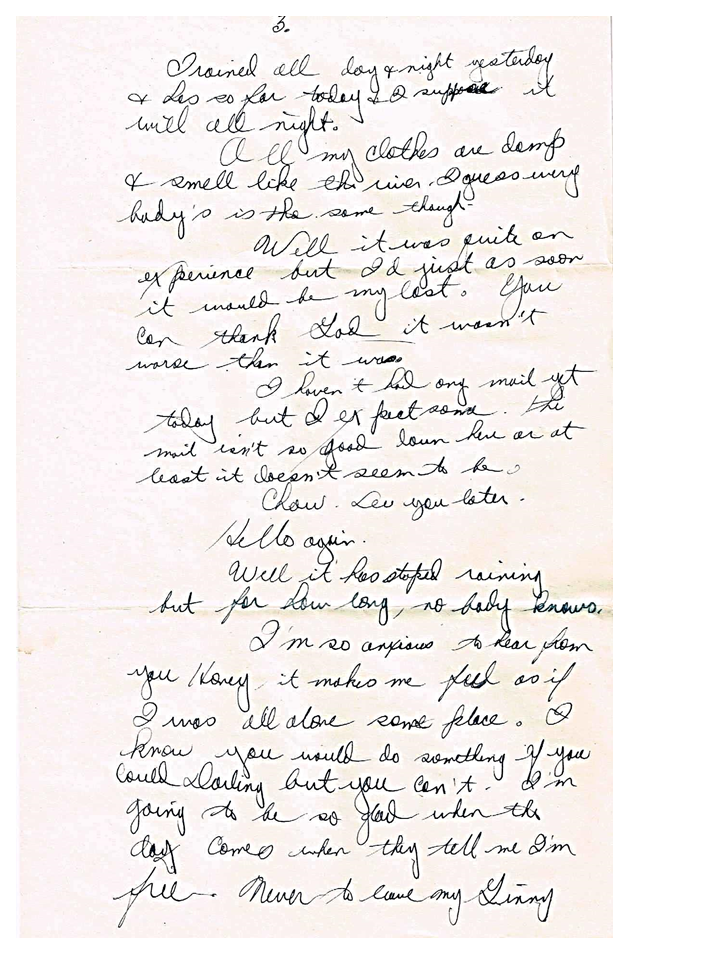 3.
I rained all day & night yesterday
& has so far today & I suppose it
will all night.
All my clothes are damp
& smell like the river. I guess every
body's is the same though.
Well it was quite an
experience but I'd just as soon
it would be my last. You
can thank God it wasn't
worse than it was.
I haven't had any mail yet
today but I expect some. The
mail isn't so good down here or at
least it doesn't seem to be.
Chow. See you later.
Hello again.
Well it has stoped raining
but for how long, no body knows.
I'm so anxious to hear from
you Honey, it makes me feel as if
I was all alone some place. I
know you would do something if you
could Darling but you can't. I'm
going to be so glad when the
day comes when they tell me I'm
free. Never to leave my Ginny